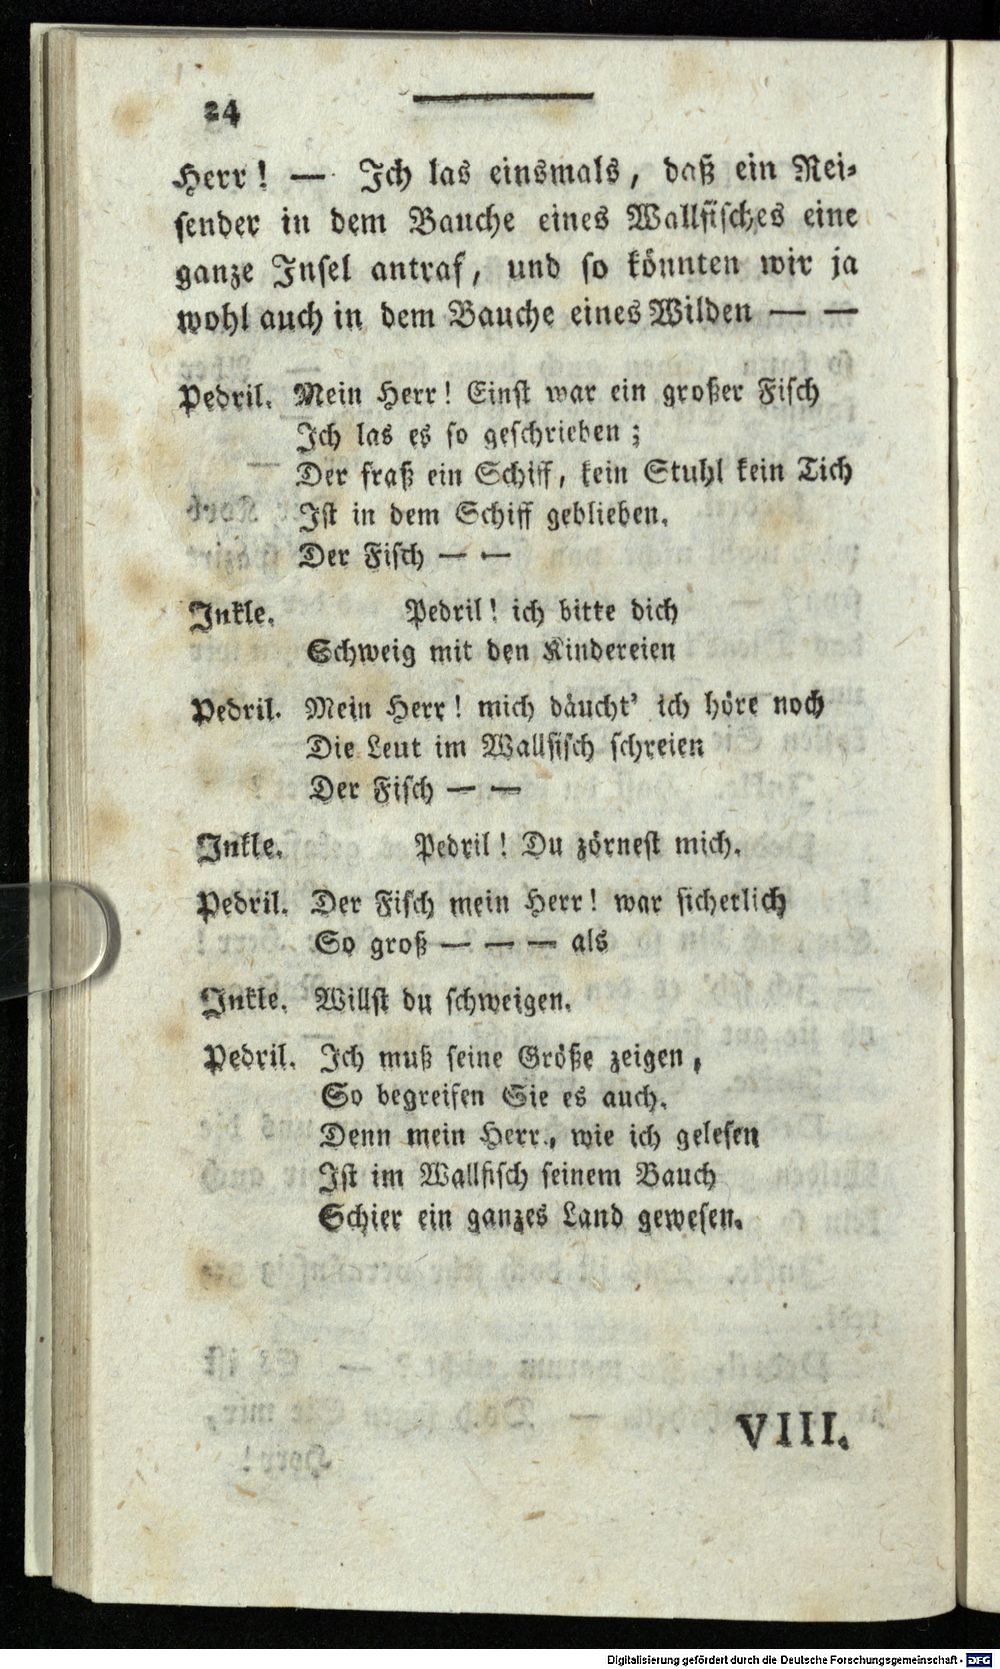 24
Herr! — Ich las einsmals, daß ein Rei-
sender in dem Bauche eines Wallfisches eine
ganze Insel antraf, und so könnten wir ja
wohl auch in dem Bauche eines Wilden — —
Pedril. Mein Herr! Einst war ein großer Fisch
Ich las es so geschrieben;
Der fraß ein Schiff, kein Stuhl kein Tich
Ist in dem Schiff geblieben.
Der Fisch — —
Inkle. Pedril! ich bitte dich
Schweig mit den Kindereien
Pedril. Mein Herr! mich däucht' ich höre noch
Die Leut im Wallfisch schreien
Der Fisch — —
Inkle. Pedril! Du zörnest mich.
Pedril. Der Fisch mein Herr! war sicherlich
So groß — — — als
Inkle. Willst du schweigen.
Pedril. Ich muß seine Größe zeigen,
So begreifen Sie es auch.
Denn mein Herr, wie ich gelesen
Ist im Wallfisch seinem Bauch
Schier ein ganzes Land gewesen.
VIII.
Digitalisierung gefördert durch die Deutsche Forschungsgemeinschaft - DFG